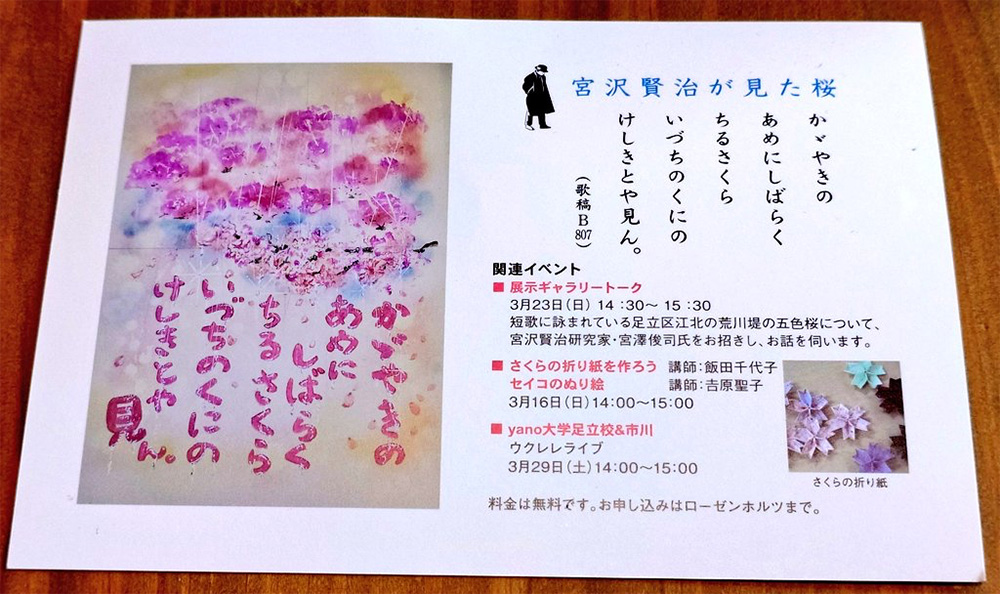 かゞやきの
あめにしばらく
ちるさくら
いづちのくにの
けしきとや
見ん。
宮沢賢治が見た桜
かゞやきの
あめにしばらく
ちるさくら
いづちのくにの
けしきとや見ん。
(歌稿B807)
関連イベント
■ 展示ギャラリートーク
3月23日(日) 14:30〜 15:30
短歌に詠まれている足立区江北の荒川堤の五色桜について、
宮沢賢治研究家・宮澤俊司氏をお招きし、お話を伺います。
■ さくらの折り紙を作ろう 講師:飯田千代子
セイコのぬり絵 講師:吉原聖子
3月16日(日)14:00〜15:00
■ yano大学足立校&市川
ウクレレライブ
3月29日(土)14:00〜15:00
さくらの折り紙
料金は無料です。お申し込みはローゼンホルツまで。